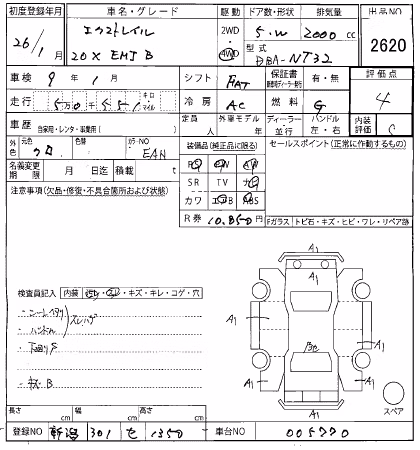 初度登録年月 車名・グレード 駆動 ドア数・形状 排気量 出品NO
26/1月 エクストレイル 2WD 5.W 2000 cc
20X EMJ B 4WD 型式 DBA-NT32 2620
車検 9年1月 シフト FAT 保証書 有・無 評価点
走行 5万0千551 キロ マイル 冷房 AC 燃料 G 4
車歴 自家用・レンタ・事業用( ) 定員 人 外車モデル 年 ディーラー 並行 ハンドル 左・右 内装評価 C
外色 元色 クロ 色替 カラーNO EAN 装備品(純正品に限る) セールスポイント(正常に作動するもの)
名義変更期限 月 日迄 積載 t PS PW AW
注意事項(欠品・修復・不具合箇所および状態) SR TV ナビ
カワ エアB ABS
R券 10.850円 Fガラス トビ石・キズ・ヒビ・ワレ・リペア跡
A1 A1
検査員記入 内装 汚れ・スレ・キズ・キレ・コゲ・穴
・シートヘタリ
・ハンドル スレハゲ
・下回りS
A1 A1 A1 A1
A1
スペア
長さ cm 幅 cm 高さ cm
登録NO 新潟 301 せ 1350 車台NO 005770